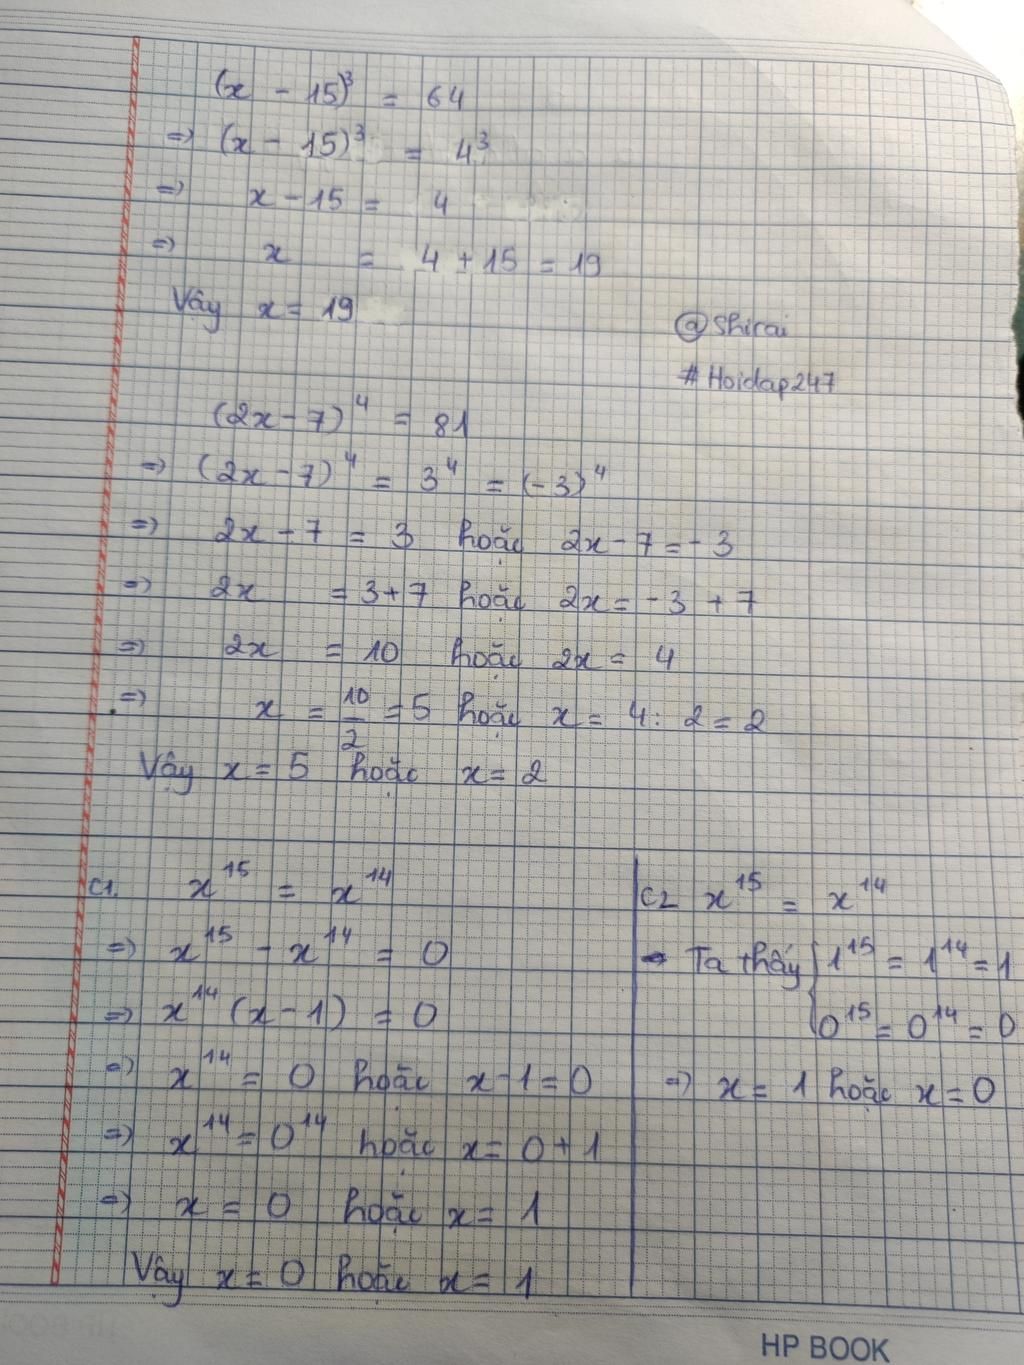 (x - 15)³ = 64
⇒ (x - 15)³ = 4³
⇒ x - 15 = 4
⇒ x = 4 + 15 = 19
Vậy x = 19
@Shirai
#Hoidap247
(2x - 7)⁴ = 81
⇒ (2x - 7)⁴ = 3⁴ = (-3)⁴
⇒ 2x - 7 = 3 hoặc 2x - 7 = -3
⇒ 2x = 3 + 7 hoặc 2x = -3 + 7
⇒ 2x = 10 hoặc 2x = 4
⇒ x = 10/2 = 5 hoặc x = 4 : 2 = 2
Vậy x = 5 hoặc x = 2
C1. x¹⁵ = x¹⁴
⇒ x¹⁵ - x¹⁴ = 0
⇒ x¹⁴ (x - 1) = 0
⇒ x¹⁴ = 0 hoặc x - 1 = 0
⇒ x¹⁴ = 0¹⁴ hoặc x = 0 + 1
⇒ x = 0 hoặc x = 1
Vậy x = 0 hoặc x = 1
C2 x¹⁵ = x¹⁴
→ Ta thấy { 1¹⁵ = 1¹⁴ = 1
0¹⁵ = 0¹⁴ = 0
⇒ x = 1 hoặc x = 0
HP BOOK